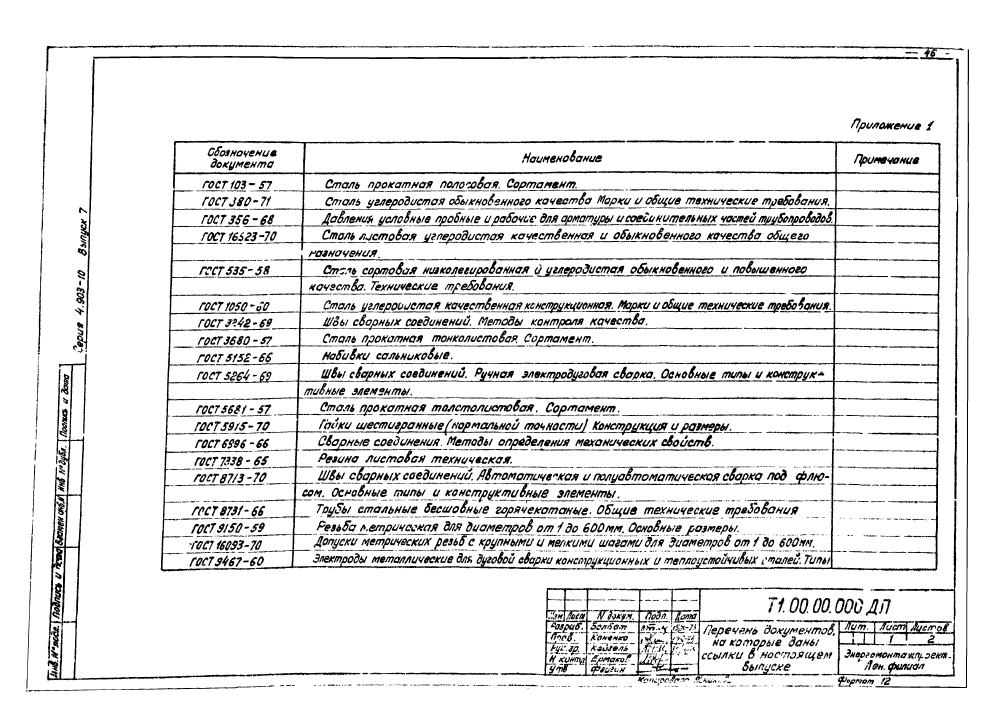 46
Приложение 1
Серия 4.903-10 Выпуск 7
Обозначение документа
Наименование
Примечание
ГОСТ 103-57 Сталь прокатная полосовая. Сортамент.
ГОСТ 380-71 Сталь углеродистая обыкновенного качества Марки и общие технические требования.
ГОСТ 356-68 Давления условные пробные и рабочие для арматуры и соединительных частей трубопроводов.
ГОСТ 16523-70 Сталь листовая углеродистая качественная и обыкновенного качества общего
назначения.
ГОСТ 535-58 Сталь сортовая низколегированная и углеродистая обыкновенного и повышенного
качества. Технические требования.
ГОСТ 1050-60 Сталь углеродистая качественная конструкционная. Марки и общие технические требования.
ГОСТ 3242-69 Швы сварных соединений. Методы контроля качества.
ГОСТ 3680-57 Сталь прокатная тонколистовая. Сортамент.
ГОСТ 5152-66 Набивки сальниковые.
ГОСТ 5264-69 Швы сварных соединений. Ручная электродуговая сварка. Основные типы и конструк-
тивные элементы.
ГОСТ 5681-57 Сталь прокатная толстолистовая. Сортамент.
ГОСТ 5915-70 Гайки шестигранные (нормальной точности) Конструкция и размеры.
ГОСТ 6996-66 Сварные соединения. Методы определения механических свойств.
ГОСТ 7338-65 Резина листовая техническая.
ГОСТ 8713-70 Швы сварных соединений. Автоматическая и полуавтоматическая сварка под флю-
сом. Основные типы и конструктивные элементы.
ГОСТ 8731-66 Трубы стальные бесшовные горячекатаные. Общие технические требования
ГОСТ 9150-59 Резьба метрическая для диаметров от 1 до 600мм. Основные размеры.
ГОСТ 16093-70 Допуски метрических резьб с крупными и мелкими шагами для диаметров от 1 до 600мм.
ГОСТ 9467-60 Электроды металлические для дуговой сварки конструкционных и теплоустойчивых сталей. Типы
Инв. № подл. Подпись и дата Взамен инв.№ Инв № дубл. Подпись и дата
Изм. Лист N докум. Подп. Дата
Т1.00.00.000 ДП
Разраб.
Пров. Коненко
Рук. гр.
Н контр Ермаков
Утв Фейгин
Перечень документов,
на которые даны
ссылки в настоящем
выпуске
Лит. Лист Листов
1 2
Энергомонтажпроект.
Лен. филиал
Копировала
Формат 12